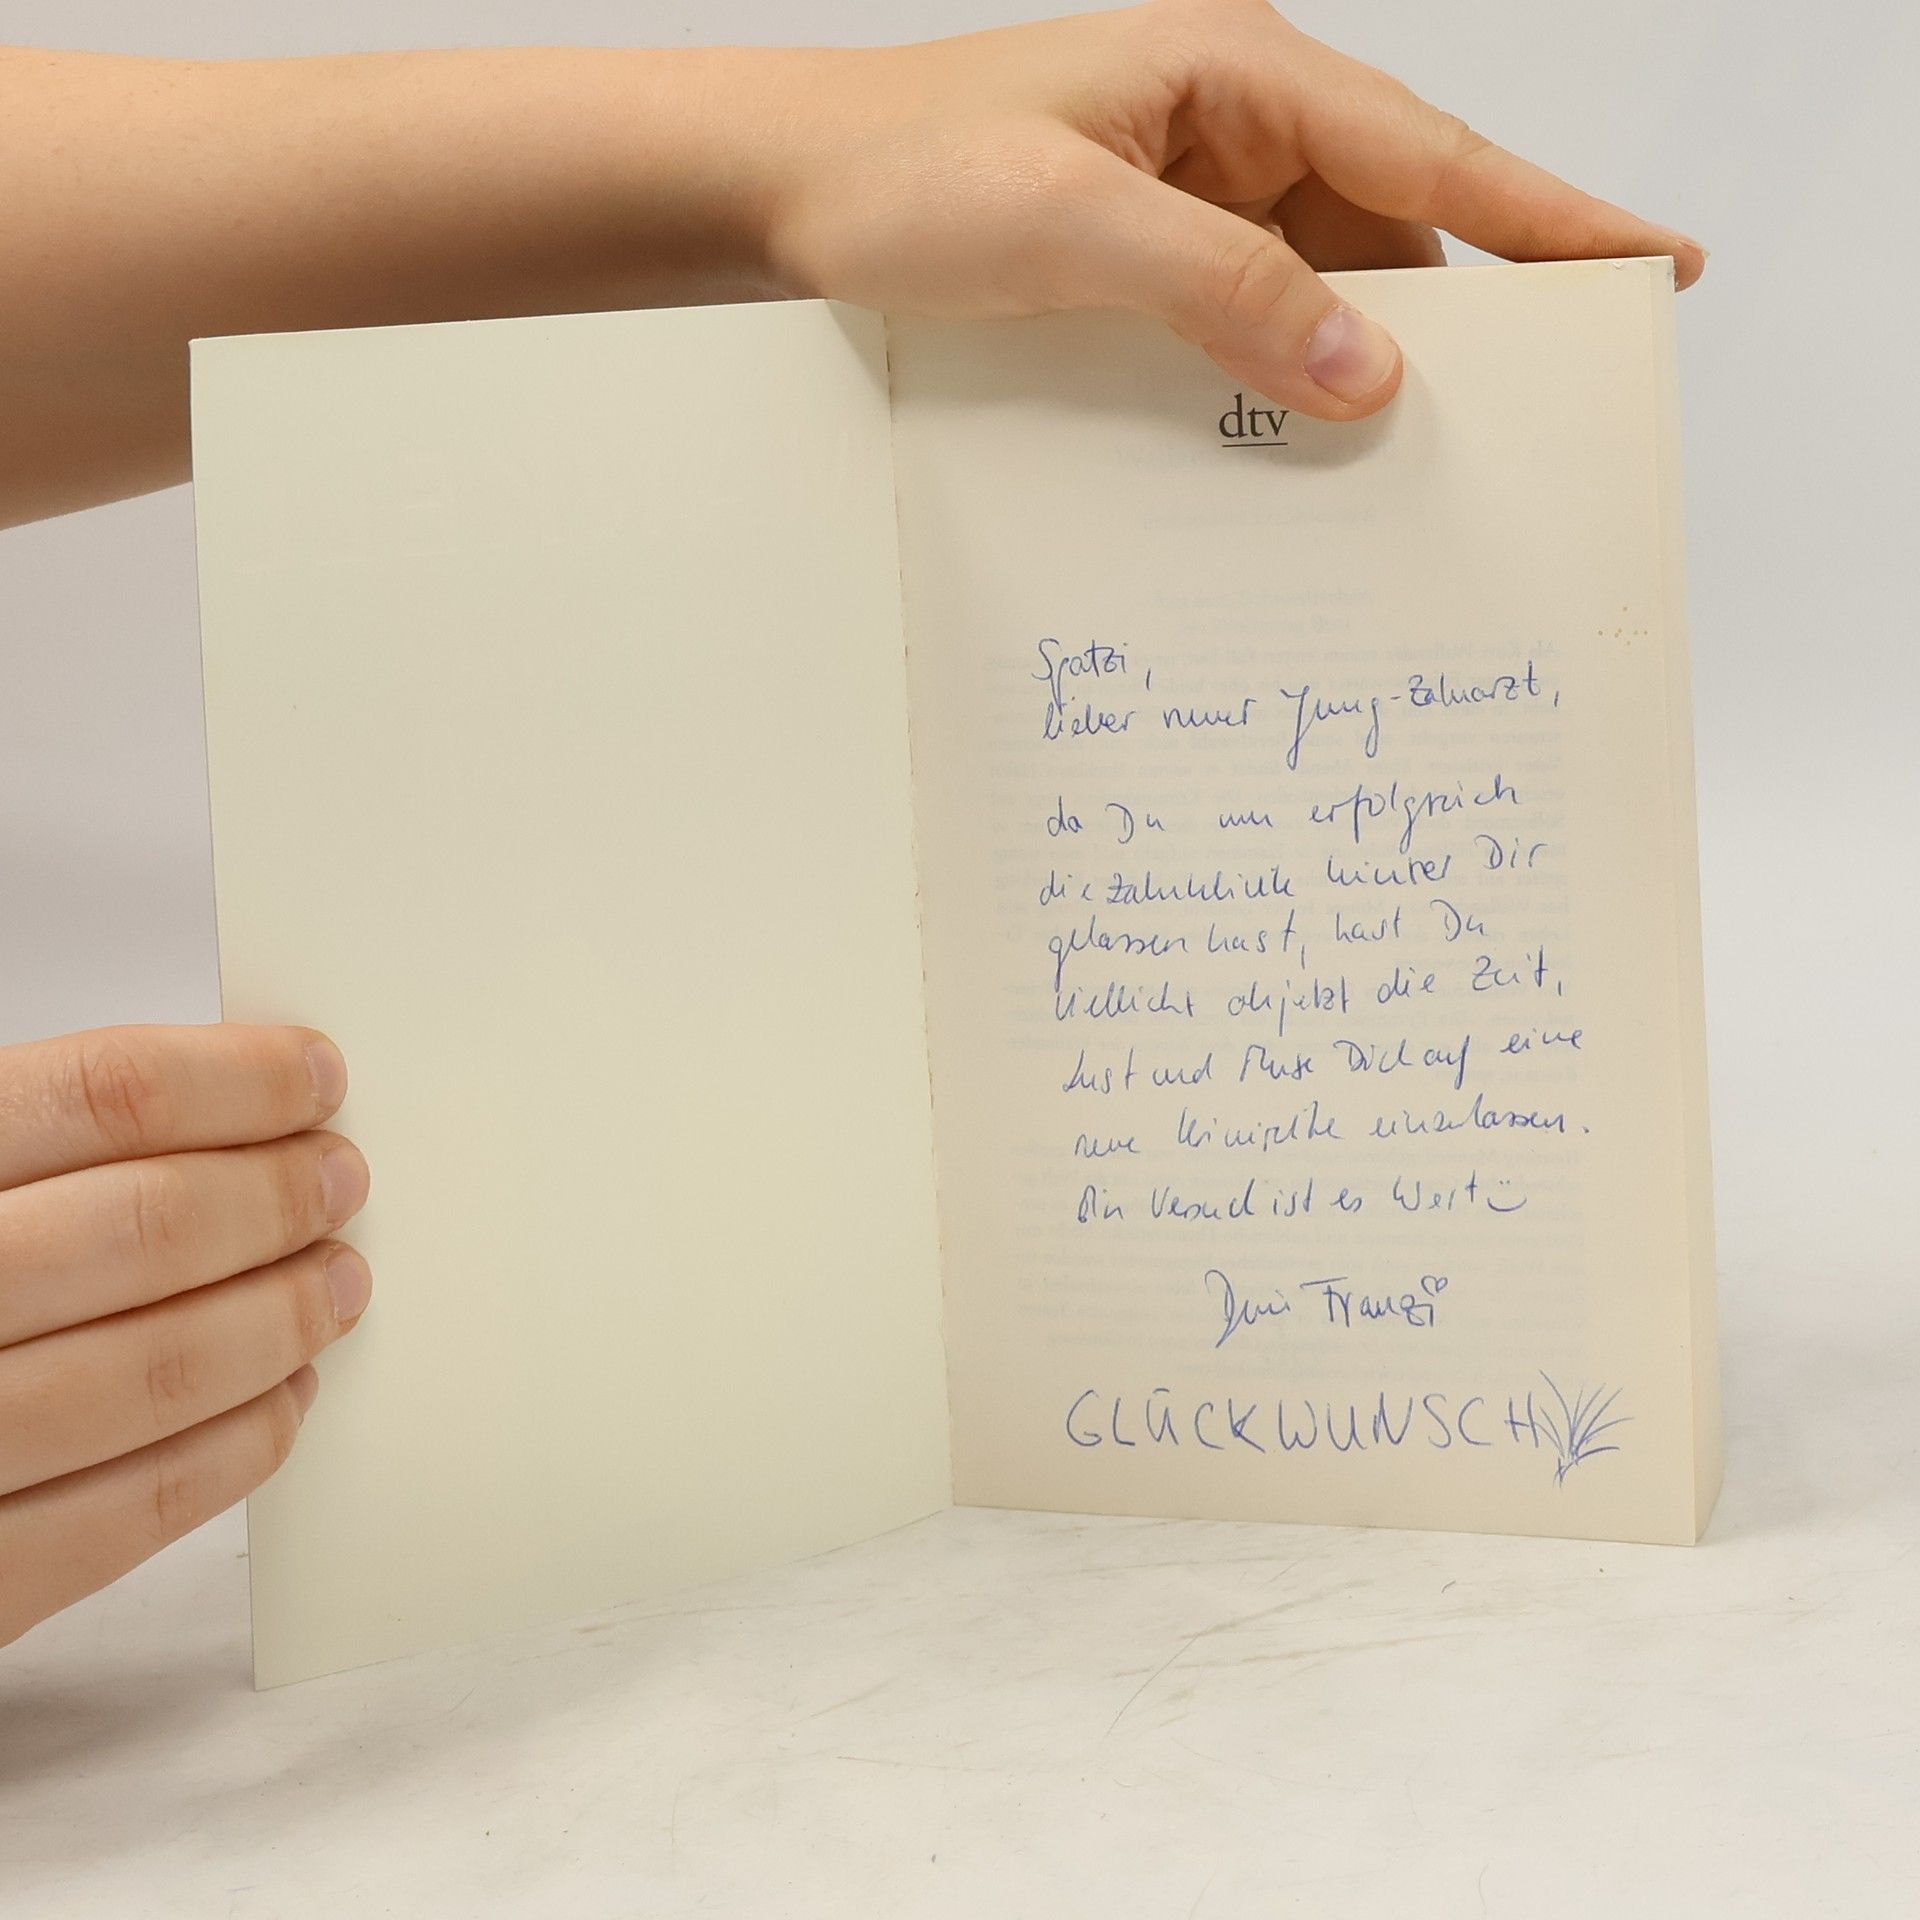 dtv
Spatzi,
lieber neuer Jung-Zahnarzt,
da Du nun erfolgreich
die Zahnklinik hinter Dir
gelassen hast, hast Du
vielleicht ab jetzt die Zeit,
Lust und Muse Dich auf eine
neue einzulassen.
Ein Versuch ist es Wert
Deine Franzi
GLÜCKWUNSCH